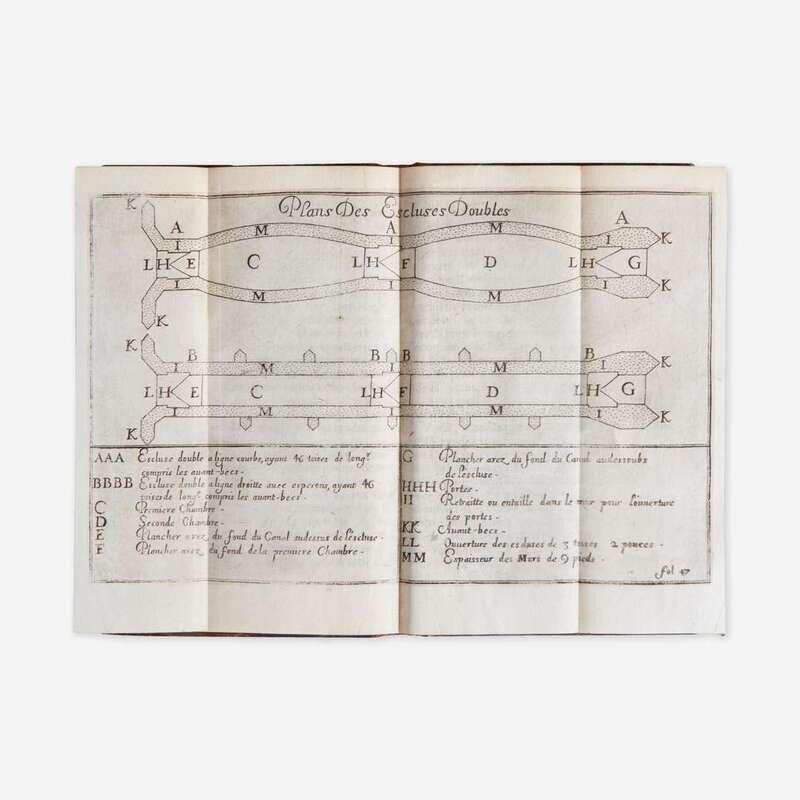 Plans Des Escluses Doubles
K A M A M A K
I I I
L H E C L H F D L H G
I I I
K M M K
K B B B B K
I M I M I
L H E C L H F D L H G
I M I M I
K K
AAA Escluse double a ligne courbe, ayant 46 toises de longr
compris les auant-becs -
BBBB Escluse double a ligne droitte auec esperons, ayant 46
toises de longr compris les auant-becs -
C Premiere Chambre -
D Seconde Chambre -
E Plancher arez du fond du Canal audessus de l'escluse -
F Plancher arez du fond de la premiere Chambre -
G Plancher arez du fond du Canal audessoubs
de l'escluse -
HHH Portes -
II Retraitte ou entaille dans le mur pour l'ouuerture
des portes -
KK Auant-becs -
LL Ouuerture des escluses de 3 toises 2 pouces -
MM Espaisseur des Murs de 9 pieds -
fol